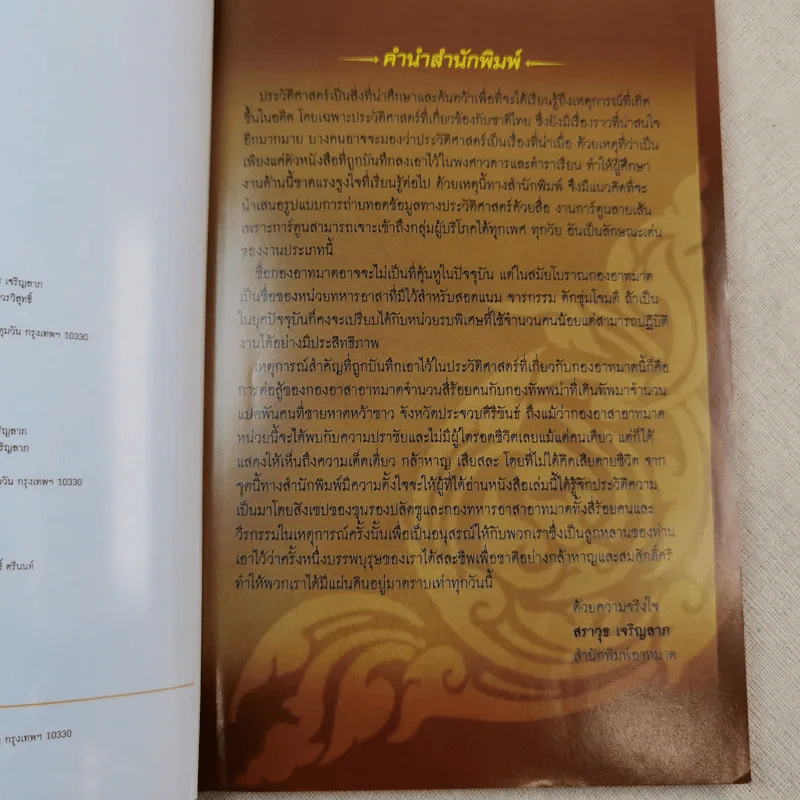 เจริญลาภ
วรวิสุทธิ์
ทุมวัน กรุงเทพฯ 10330
ริญลาภ
ริญลาภ
วัน กรุงเทพฯ 10330
ศรีนนท์
กรุงเทพฯ 10330
คำนำสำนักพิมพ์
ประวัติศาสตร์เป็นสิ่งที่น่าศึกษาและค้นคว้าเพื่อที่จะได้เรียนรู้ถึงเหตุการณ์ที่เกิด
ขึ้นในอดีต โดยเฉพาะประวัติศาสตร์ที่เกี่ยวข้องกับชาติไทย ซึ่งยังมีเรื่องราวที่น่าสนใจ
อีกมากมาย บางคนอาจจะมองว่าประวัติศาสตร์เป็นเรื่องที่น่าเบื่อ ด้วยเหตุที่ว่าเป็น
เพียงแค่ตัวหนังสือที่ถูกบันทึกลงเอาไว้ในพงศาวดารและตำราเรียน ทำให้ผู้ศึกษา
งานด้านนี้ขาดแรงจูงใจที่เรียนรู้ต่อไป ด้วยเหตุนี้ทางสำนักพิมพ์ จึงมีแนวคิดที่จะ
นำเสนอรูปแบบการถ่ายทอดข้อมูลทางประวัติศาสตร์ด้วยสื่อ งานการ์ตูนลายเส้น
เพราะการ์ตูนสามารถเจาะเข้าถึงกลุ่มผู้บริโภคได้ทุกเพศ ทุกวัย อันเป็นลักษณะเด่น
ของงานประเภทนี้
ชื่อกองอาทมาตอาจจะไม่เป็นที่คุ้นหูในปัจจุบัน แต่ในสมัยโบราณกองอาทมาต
เป็นชื่อของหน่วยทหารอาสาที่มีไว้สำหรับสอดแนม จารกรรม ดักซุ่มโจมตี ถ้าเป็น
ในยุคปัจจุบันก็คงจะเปรียบได้กับหน่วยรบพิเศษที่ใช้จำนวนคนน้อยแต่สามารถปฏิบัติ
งานได้อย่างมีประสิทธิภาพ
เหตุการณ์สำคัญที่ถูกบันทึกเอาไว้ในประวัติศาสตร์ที่เกี่ยวกับกองอาทมาตนี้ก็คือ
การต่อสู้ของกองอาสาอาทมาตจำนวนสี่ร้อยคนกับกองทัพพม่าที่เดินทัพมาจำนวน
แปดพันคนที่ชายหาดหว้าขาว จังหวัดประจวบคีรีขันธ์ ถึงแม้ว่ากองอาสาอาทมาต
หน่วยนี้จะได้พบกับความปราชัยและไม่มีผู้ใดรอดชีวิตเลยแม้แต่คนเดียว แต่ก็ได้
แสดงให้เห็นถึงความเด็ดเดี่ยว กล้าหาญ เสียสละ โดยที่ไม่ได้คิดเสียดายชีวิต จาก
จุดนี้ทางสำนักพิมพ์มีความตั้งใจจะให้ผู้ที่ได้อ่านหนังสือเล่มนี้ได้รู้จักประวัติความ
เป็นมาโดยสังเขปของขุนรองปลัดชูและกองทหารอาสาอาทมาตทั้งสี่ร้อยคนและ
วีรกรรมในเหตุการณ์ครั้งนั้นเพื่อเป็นอนุสรณ์ให้กับพวกเราซึ่งเป็นลูกหลานของท่าน
เอาไว้ว่าครั้งหนึ่งบรรพบุรุษของเราได้สละชีพเพื่อชาติอย่างกล้าหาญและสมศักดิ์ศรี
ทำให้พวกเราได้มีแผ่นดินอยู่มาตราบเท่าทุกวันนี้
ด้วยความจริงใจ
สราวุธ เจริญลาภ
สำนักพิมพ์อาทมาต